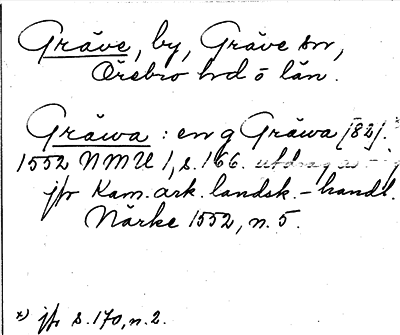 Gräve, by, Gräve sn,
Örebro hd o län.
Gräwa : en g Gräwa [82].
1552 NMU 1, s. 166.
jfr Kam. ark. landsk. - handl.
Närke 1552, n. 5.
x) jfr s. 170, n. 2.